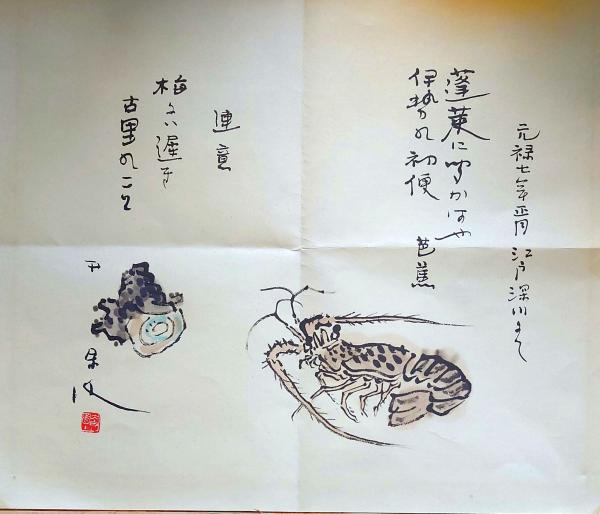 元禄七年正月 江戸深川にて
蓬莱に聞かはや
伊勢の初便 芭蕉
連意
梅 遅き
古里のこと